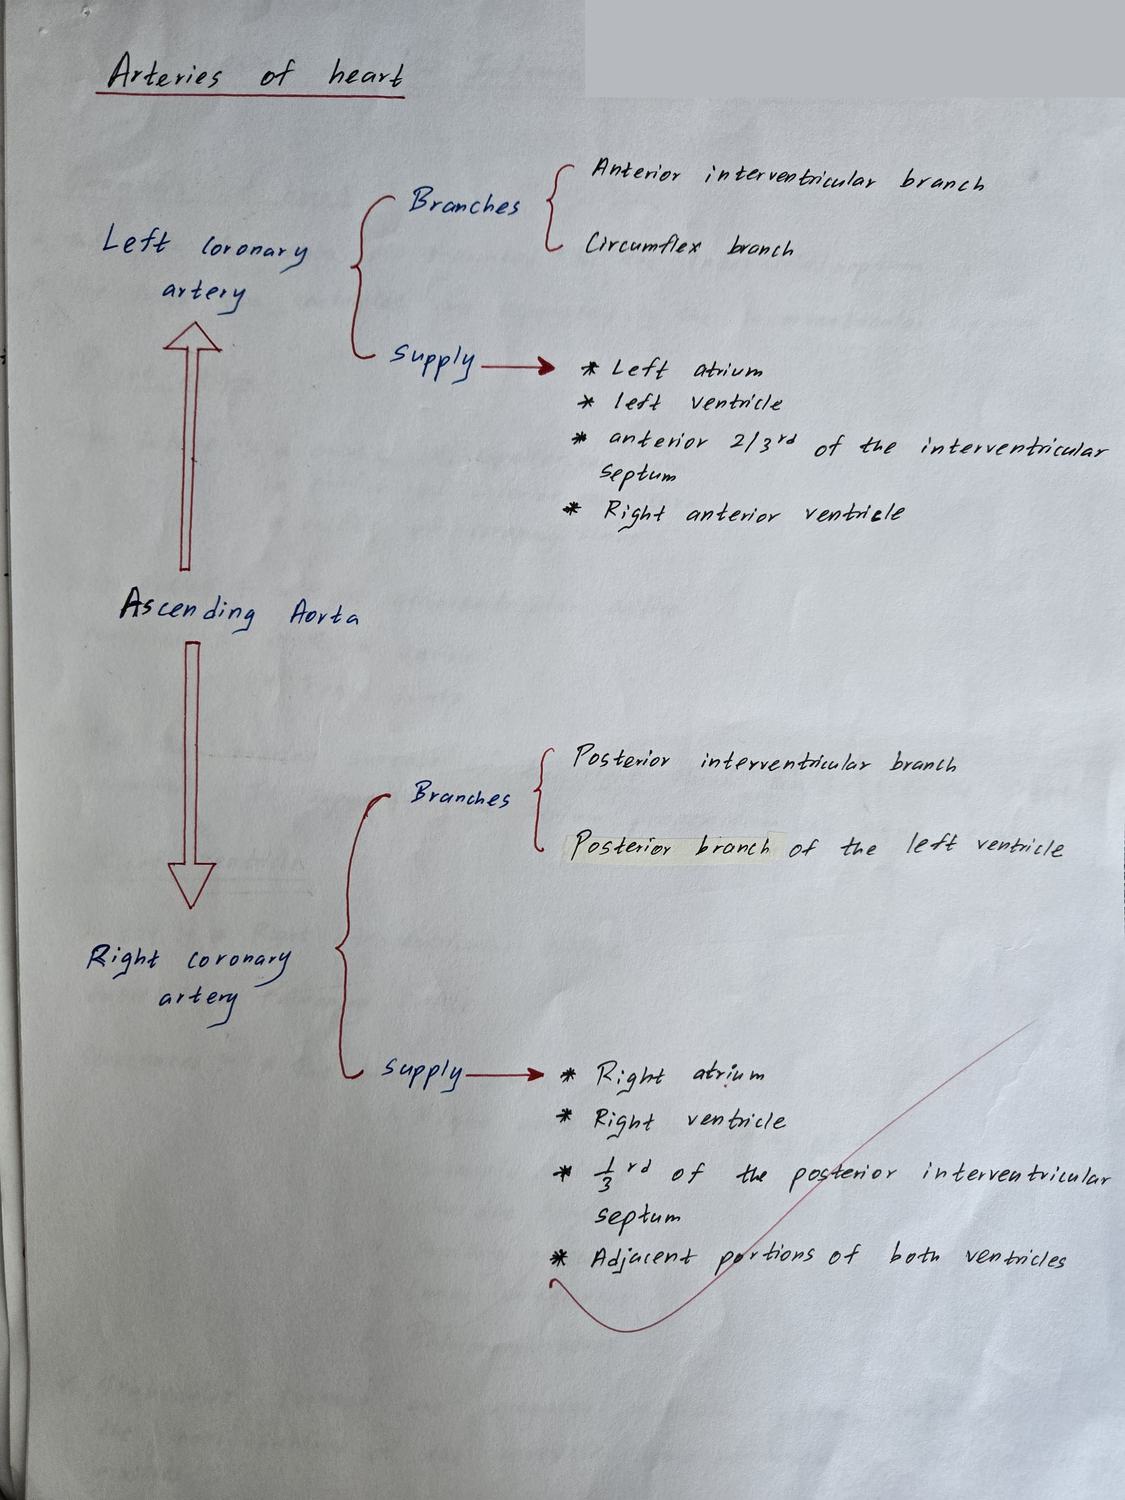 Arteries of heart
Anterior interventricular branch
Branches
Circumflex branch
Left coronary
artery
Supply
* Left atrium
* left ventricle
* anterior 2/3rd of the interventricular
septum
* Right anterior ventricle
Ascending Aorta
Posterior interventricular branch
Branches
Posterior branch of the left ventricle
Right coronary
artery
Supply
* Right atrium
* Right ventricle
* 1/3 rd of the posterior interventricular
septum
* Adjacent portions of both ventricles